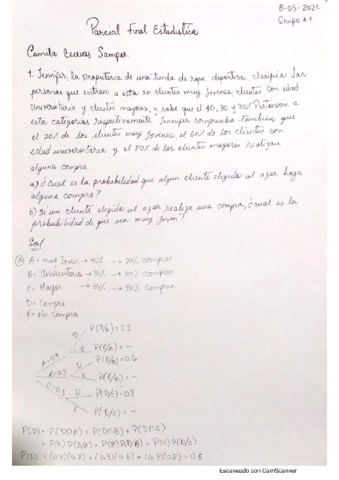 8-03-2021
Grupo #1
Parcial Final Estadística
Camila Cuevas Samper
1. Jennifer, la propietaria de una tienda de ropa deportiva, clasifica las
personas que entran a esta en clientes muy jovenes, clientes con edad
Universitaria y clientes mayores, y sabe que el 40, 30 y 30% Pertenecen a
esta categorías respectivamente. Jennifer comprueba también que
el 20% de los clientes muy Jovenes, el 60% de los clientes con
edad universitaria y el 80% de los clientes mayores realizan
alguna compra.
a) ¿Cual es la probabilidad que algun cliente elegido al azar haga
alguna compra?
b) Si un cliente elegido al azar realiza una compra, ¿cual es la
probabilidad de que sea muy Joven?
Sol
a) A= muy Joven → 40% → 20% compran
B= Universitario → 30% → 60% compran
C= Mayor → 30% → 80% compran
D= Compra
E= No Compra
D P(D/A) = 0.2
A=0.4 E P(E/A) = -
D P(D/B) = 0.6
B=0.3 E P(E/B) = -
C=0.3 D P(D/C) = 0.8
E P(E/C) = -
P(D)= P(D∩A) + P(D∩B) + P(D∩C)
= P(A) P(D/A) + P(B) P(D/B) + P(C) P(D/C)
P(D) = (0.4)(0.2) + (0.3)(0.6) + (0.3)(0.8) = 0.5
Escaneado con CamScanner